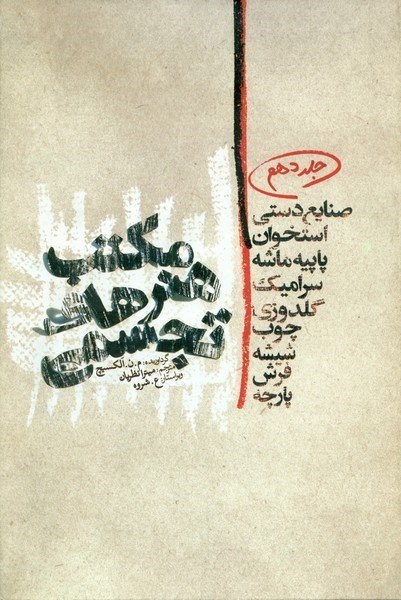 جلد دهم
صنایع دستی
استخوان
پاپیه ماشه
سرامیک
گلدوزی
چوب
شیشه
فرش
پارچه
مکتب
هنرهای
تجسمی
گردآورنده: م. ن. الکسیچ
مترجم: میترا نظریان
ویراستار: ع. شروه